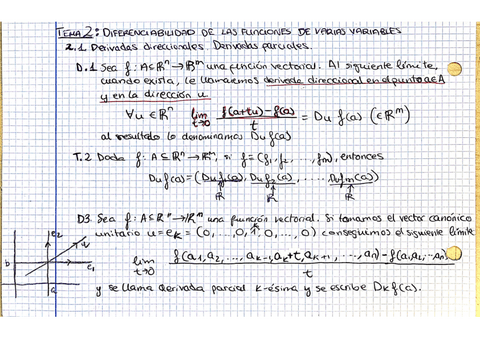 TEMA 2: DIFERENCIABILIDAD DE LAS FUNCIONES DE VARIAS VARIABLES
2.1 Derivadas direccionales. Derivadas parciales.
D.1 Sea f: A⊆ℝⁿ→ℝᵐ una función vectorial. Al siguiente límite,
cuando exista, le llamaremos derivada direccional en el punto a∈A
y en la dirección u
∀u∈ℝⁿ lim t→0 (f(a+tu)-f(a))/t = Du f(a) (∈ℝᵐ)
al resultado lo denominamos Du f(a)
T.2 Dada f: A⊆ℝⁿ→ℝᵐ, si f=(f₁, f₂, ..., fm), entonces
Du f(a) = (Du f₁(a), Du f₂(a), ..., Du fm(a))
ℝ ℝ ℝ
D3. Sea f: A⊆ℝⁿ→ℝᵐ una función vectorial. Si tomamos el vector canónico
unitario u=eₖ=(0, ..., 0, 1, 0, ..., 0) conseguimos el siguiente límite
k
lim t→0 (f(a₁, a₂, ..., aₖ₋₁, aₖ+t, aₖ₊₁, ..., aₙ)-f(a₁, a₂, ... aₙ))/t
y se llama derivada parcial k-ésima y se escribe Dₖ f(a).
e₂
u
b
e₁
a